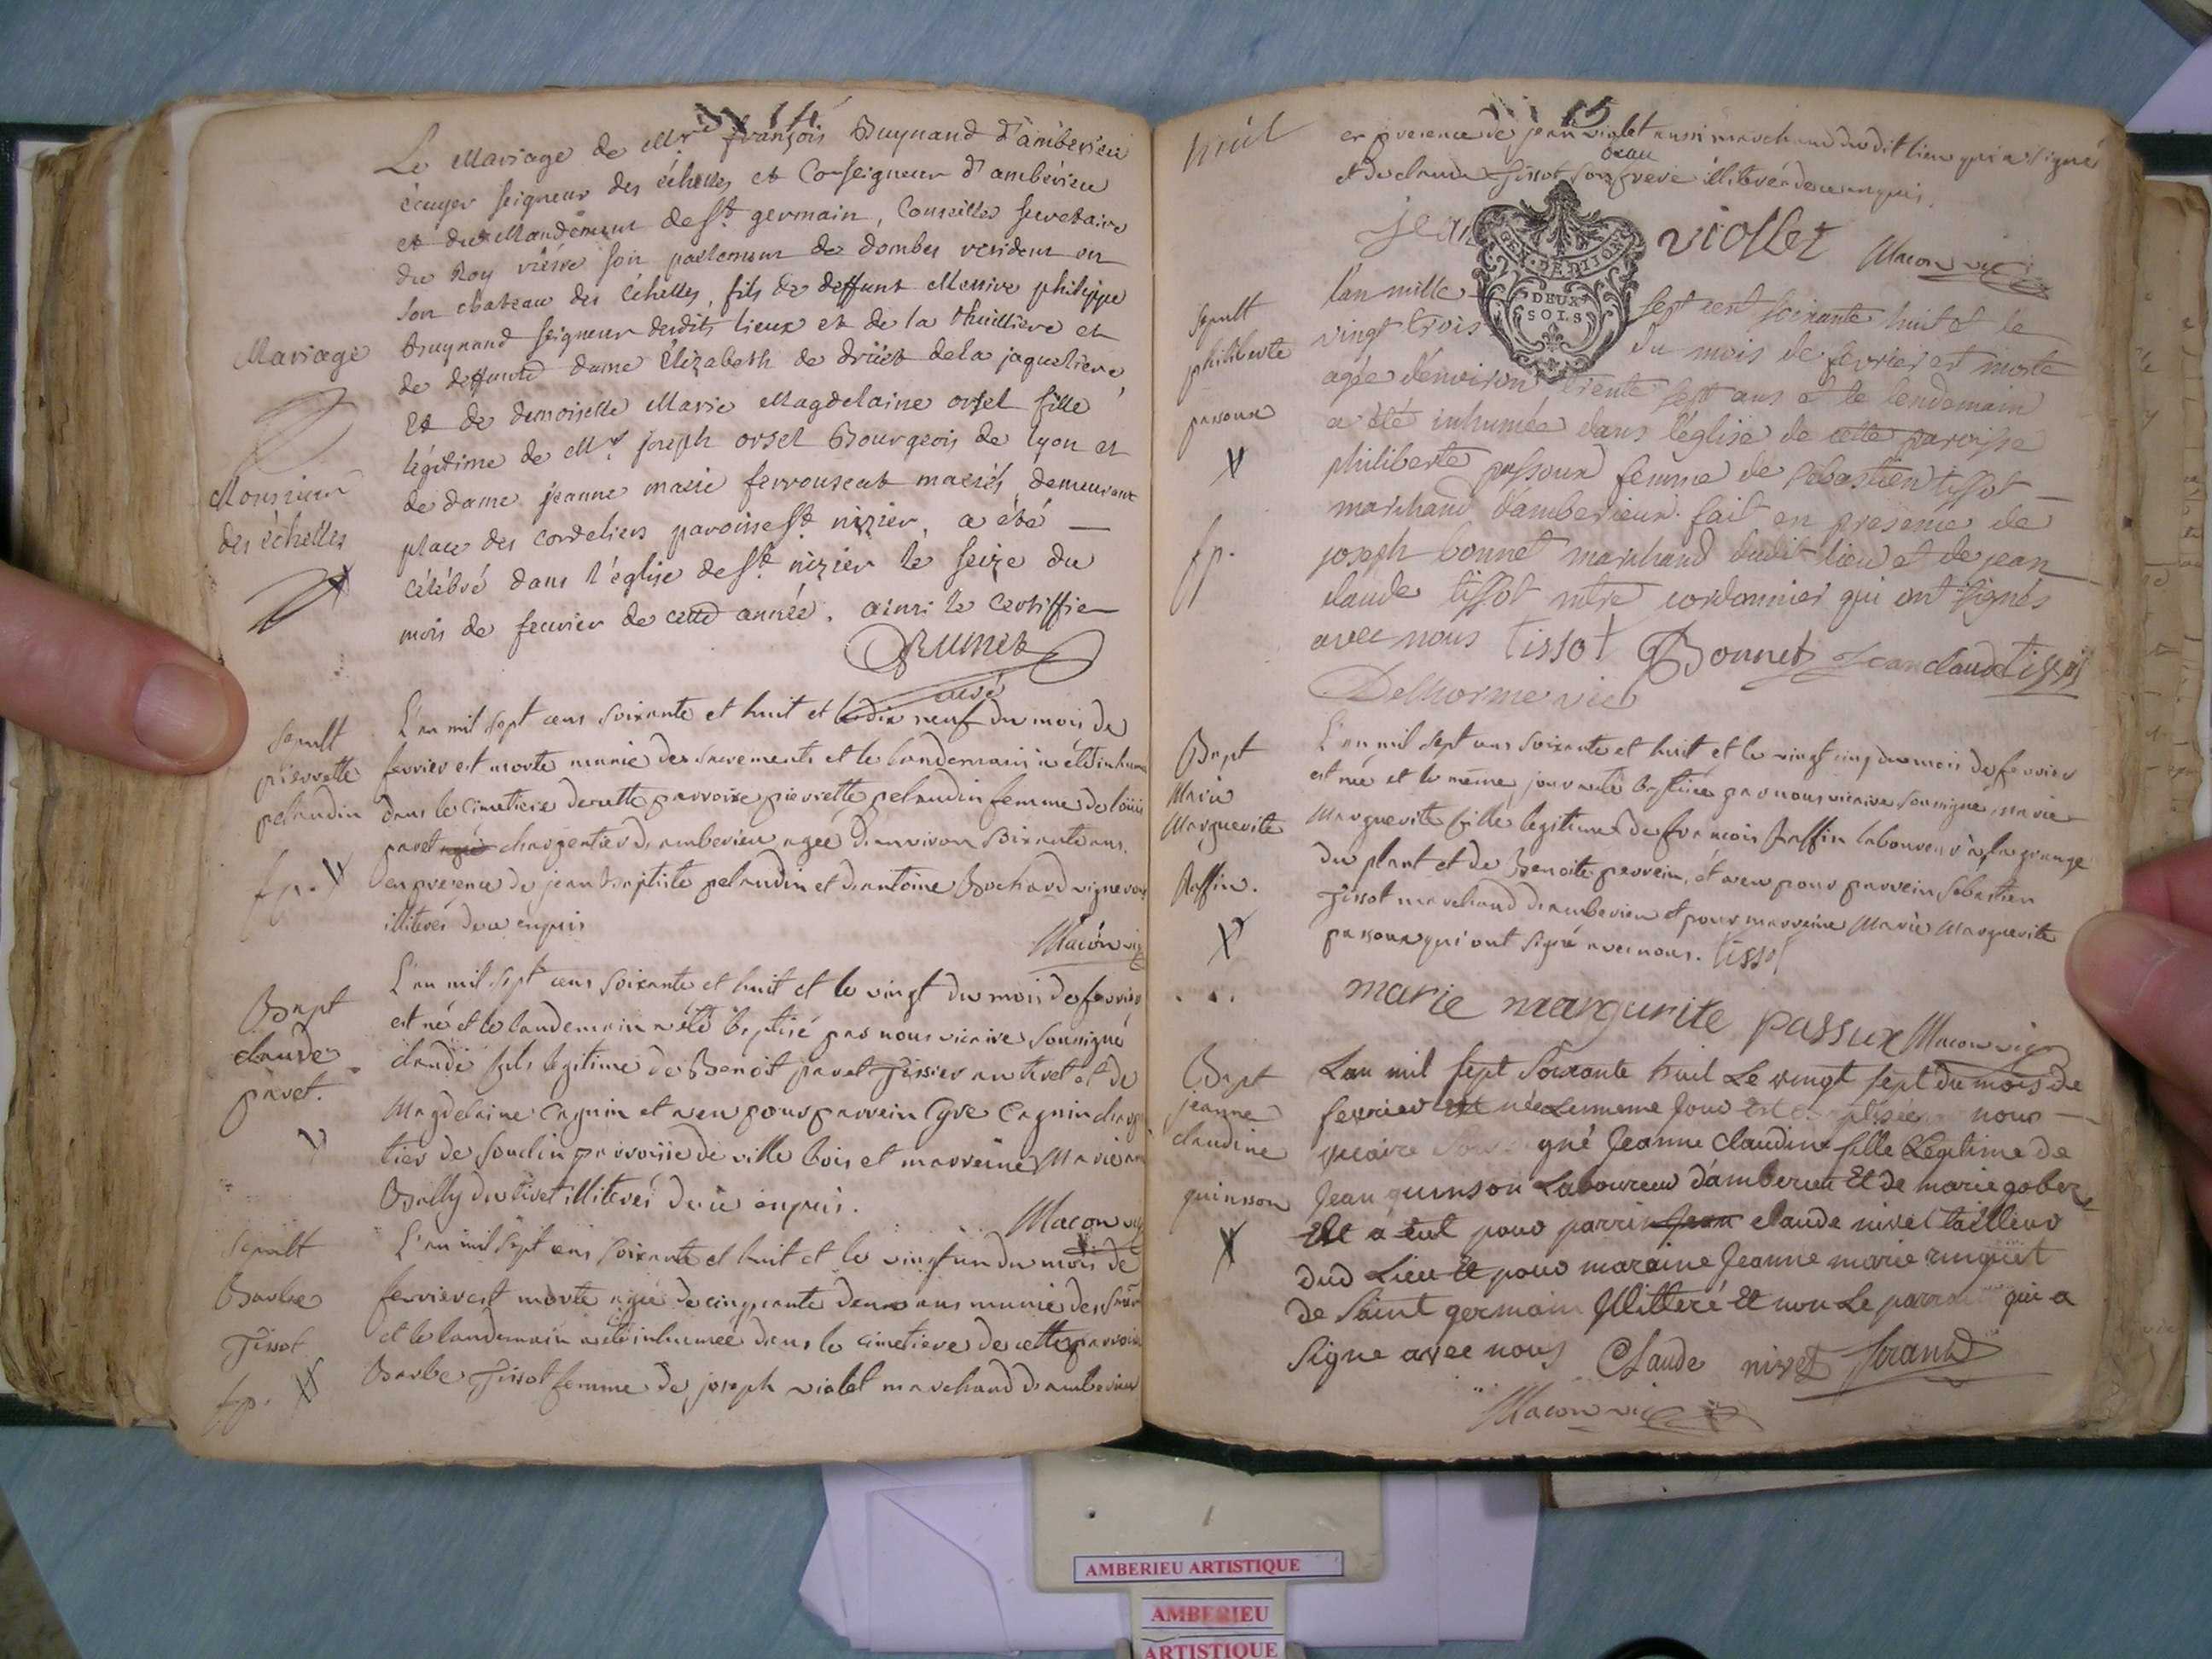 14
Le Mariage de Mr françois Buynand d'ambérieu
écuyer seigneur des échelles et Conseigneur d'ambérieu
et du Mandement de St germain, Conseiller secretaire
du Roy vers son parlement de dombes resident en
son chateau des échelles, fils de deffunt Messire philippe
Buynand seigneur desdits lieux et de la thuilliere et
Mariage
de deffunte dame Élizabeth de drüet dela jaqueliere,
Et de demoiselle Marie Magdelaine orsel fille
légitime de Mr joseph orsel Bourgeois de lyon et
Monsieur
des échelles
de dame jeanne marie ferrouseat mariés, demeurant
place des cordeliers paroisse St nizier, a été
célébré dans l'église de St nizier le seize du
mois de fevrier de cette année. ainsi le certiffie
Brunet
curé
Sepult
pierrette
pelaudin
fp.
L'an mil sept cens soixante et huit et le dix neuf du mois de
fevrier est morte munie des sacrements et le landemain a été inhumé
dans le cimetiere de cette parroisse pierrette pelaudin femme de loüis
pavet agée charpentier d'amberieu agée d'environ soixante ans,
en presence de jean Baptiste pelaudin et d'antoine Bochard vignerons
illiterés de ce enquis
Macon vic
Bapt
claude
pavet.
L'an mil sept cens soixante et huit et le vingt du mois de fevrier
est né et le landemain a été baptisé par nous vicaire soussigné
claude fils legitime de Benoit pavet Tissier au tiret et de
Magdelaine Cagnin et a eu pour parrein Gve Cagnin charpen
tier de Souclin parroisse de ville bois et marreine Marie an
Bailly du tiret illiterés de ce enquis.
Macon vic
Sepult
Barbe
Tissot
fp.
L'an mil sept cens soixante et huit et le vingt un du mois de
fevrier est morte agée de cinquante deux ans munie des Sacre
et le landemain a été inhumée dans le cimetiere de cette parroisse
Barbe Tissot femme de joseph violet marchand d'amberieu
15
huit
en presence de jean violet aussi marchand dudit lieu qui a signé
et de claude Tissot son beau frere illiteré de ce enquis.
jean viollet Macon vic
GEN. DE DIJON
DEUX
SOLS
Sepult
philiberte
passoux
fp.
l'an mille sept cent soixante huit et le
vingt trois du mois de fevrier est morte
agée d'environ trente sept ans et le lendemain
a été inhumée dans l'église de cette paroisse
philiberte passoux femme de sebastien tissot
marchand d'amberieux. fait en presence de
joseph bonnet marchand dudit lieu et de jean
claude tissot mtre cordonnier qui ont signés
avec nous tissot Bonnet jean claude tissot
Delhorme vic
Bapt
Marie
Marguerite
Raffin.
L'an mil sept cens soixante et huit et le vingt cinq du mois de fevrier
est née et le même jour a été baptisée par nous vicaire soussigné Marie
Marguerite fille legitime de françois Raffin laboureur à la grange
du plant et de Benoite perrein, et a eu pour parrein Sebastien
Tissot marchand d'amberieu et pour marreine Marie Marguerite
passoux qui ont signé avec nous. tissot
marie margurite passux Macon vic
Bapt
jeanne
claudine
quinson
Lan mil sept soixante huit Le vingt sept du mois de
fevrier est née Le meme Jour est baptisée nous
vicaire sous gné Jeanne Claudine fille Légitime de
Jean quinson Laboureur d'amberieu Et de marie gober
Elle a eut pour parrin Jean claude nivet tailleur
dud Lieu Et pour maraine Jeanne marie ruguet
de Saint germain Illitteré Et non Le parrain qui a
Signe avec nous Claude nivet ferrand
Macon vic
AMBERIEU ARTISTIQUE
AMBERIEU
ARTISTIQUE